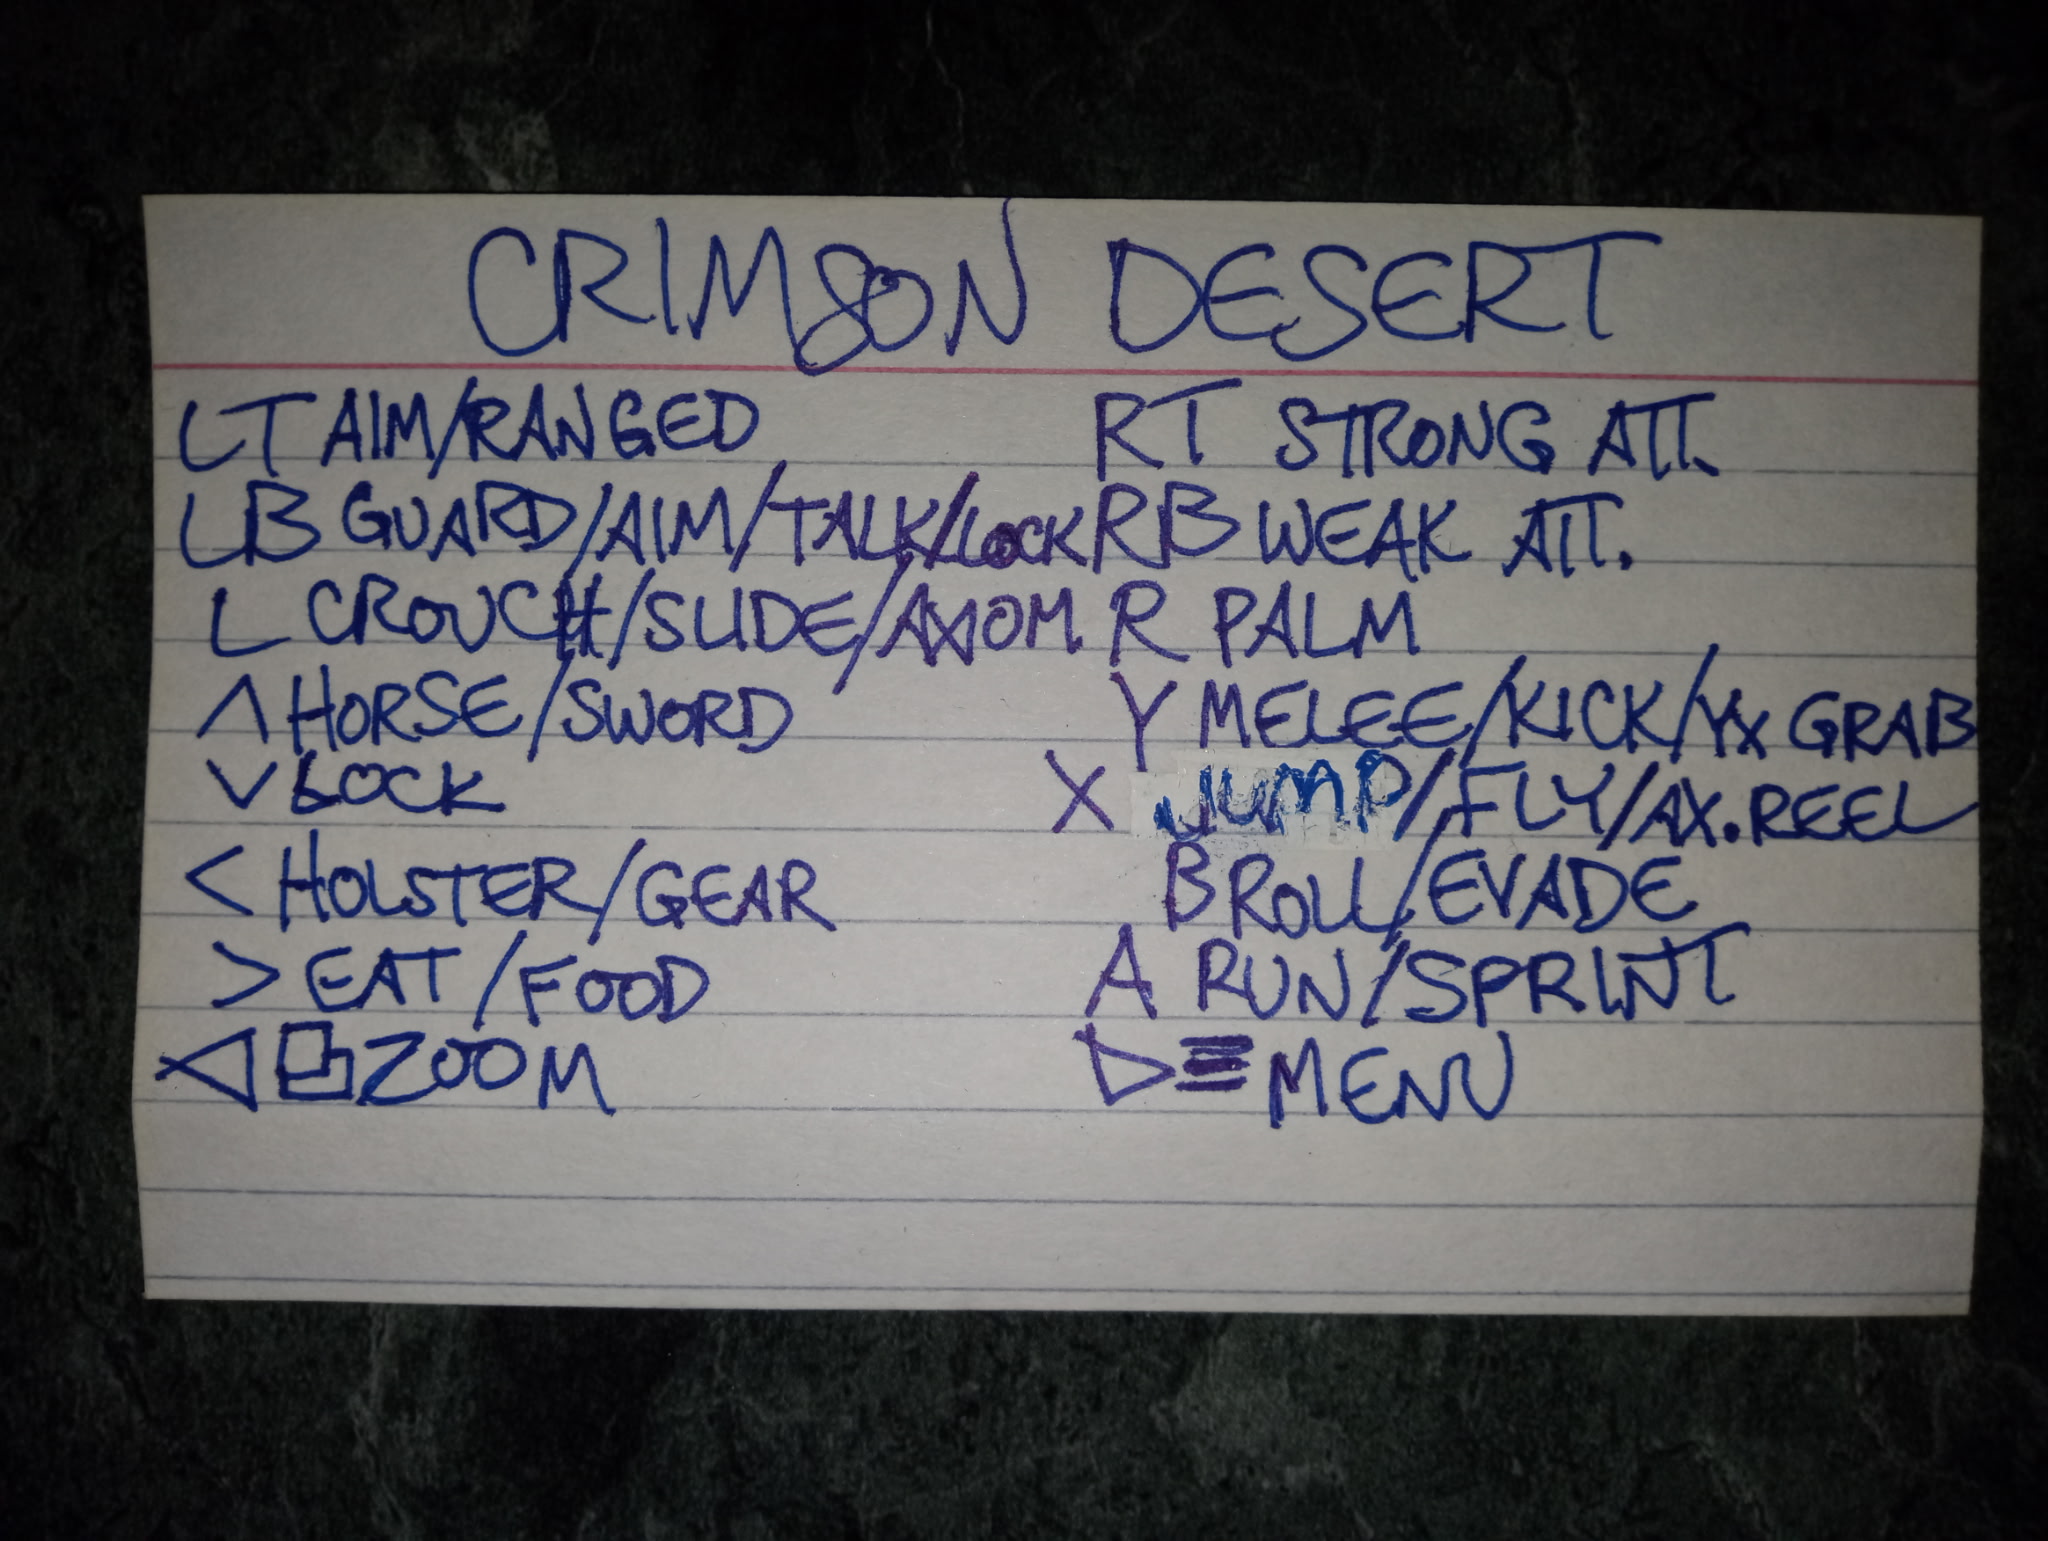 CRIMSON DESERT
LT AIM/RANGED RT STRONG ATT.
LB GUARD/AIM/TALK/LOCK RB WEAK ATT.
L CROUCH/SLIDE/AXIOM R PALM
^ HORSE/SWORD Y MELEE/KICK/YX GRAB
v LOCK X JUMP/FLY/AX.REEL
< HOLSTER/GEAR B ROLL/EVADE
> EAT/FOOD A RUN/SPRINT
◁ ZOOM ▷ ≡ MENU